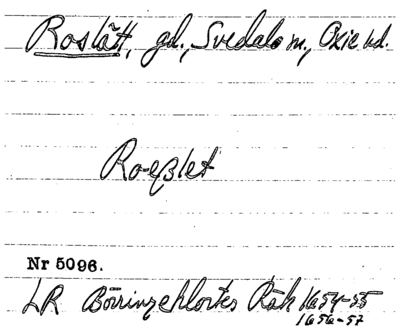 Roslätt, gd., Svedala sn, Oxie hd.
Roeßlet
Nr 5096.
LR Börringeklosters Räk 1654-55
1656-57